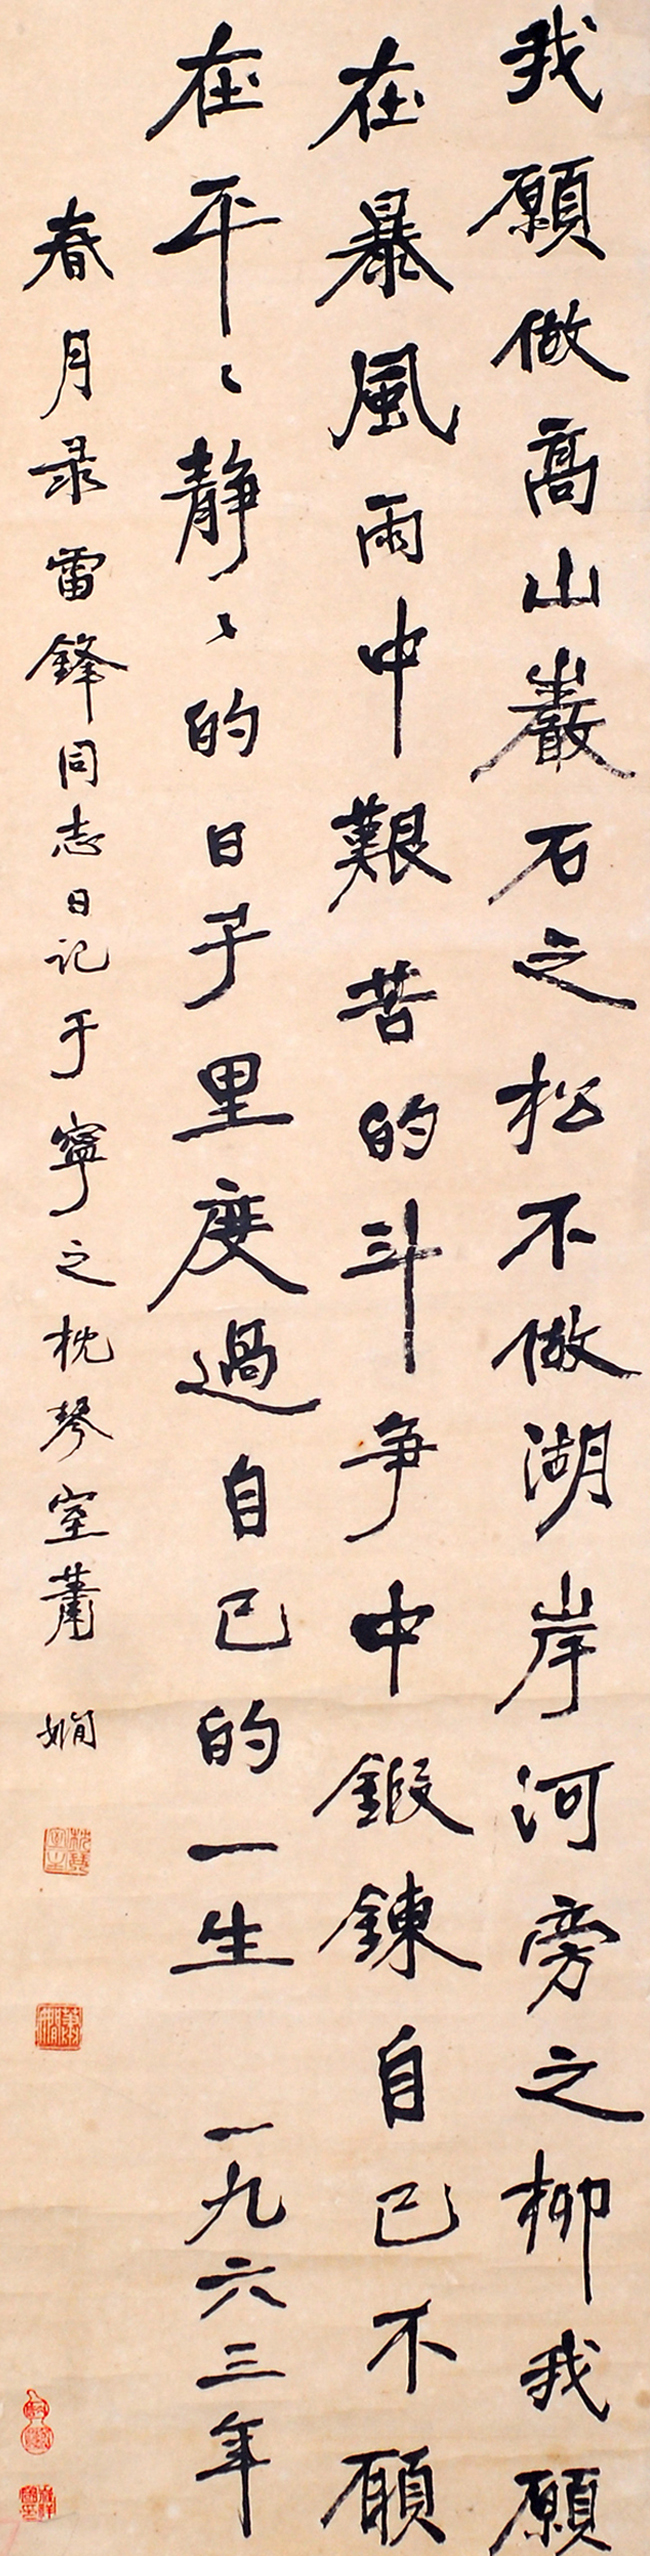 我願做高山巖石之松不做湖岸河旁之柳我願
在暴風雨中艱苦的斗争中鍛鍊自己不願
在平〻静〻的日子里度過自己的一生 一九六三年
春月录雷鋒同志日记于寧之枕琴室蕭嫺
枕琴室主
蕭嫻